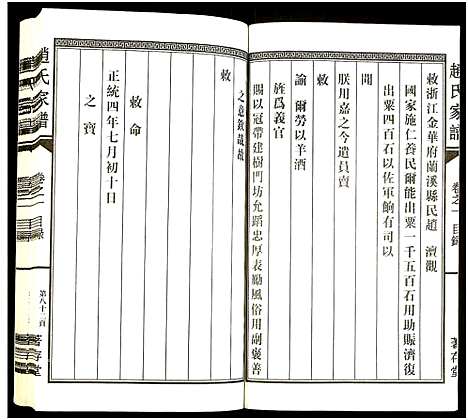 趙氏家譜
卷之一 目錄
著存堂
敕浙江金華府蘭溪縣民趙 澶觀
國家施仁養民爾能出粟一千五百石用助賑濟復
出粟四百石以佐軍餉有司以
聞
朕用嘉之今遣員賫
諭 爾勞以羊酒
旌爲義官
賜以冠帶建樹門坊允蹈忠厚表勵風俗用副褒善
之意欽哉故
敕
敕命
正統四年七月初十日
之寶
趙氏家譜
卷之一 目錄
著存堂